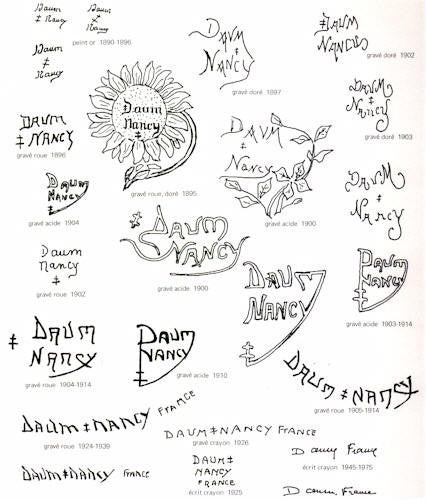 Daum
‡ Nancy
Daum
‡
Nancy
Daum
‡
Nancy
peint or 1890-1896
DAUM
‡
NANCY
gravé doré 1897
‡DAUM
NANCY
gravé doré 1902
DAUM
‡ NANCY
gravé roue 1896
Daum
Nancy
‡
gravé roue, doré 1895
DAUM
‡
NANCY
gravé acide 1900
DAUM
‡
NANCY
gravé doré 1903
DAUM
NANCY
‡
gravé acide 1904
DAUM
‡
NANCY
Daum
Nancy
‡
gravé roue 1902
‡ DAUM
NANCY
gravé acide 1900
DAUM
NANCY
‡
gravé acide 1900
DAUM
NANCY
‡
gravé acide 1903-1914
‡ DAUM
NANCY
gravé roue 1904-1914
DAUM
NANCY
‡
gravé acide 1910
DAUM ‡ NANCY
gravé roue 1905-1914
DAUM ‡ NANCY FRANCE
gravé roue 1924-1939
DAUM ‡ NANCY FRANCE
gravé crayon 1926
DAUM ‡ NANCY FRANCE
DAUM
‡
NANCY
FRANCE
écrit crayon 1925
Daum France
écrit crayon 1945-1975
Daum France